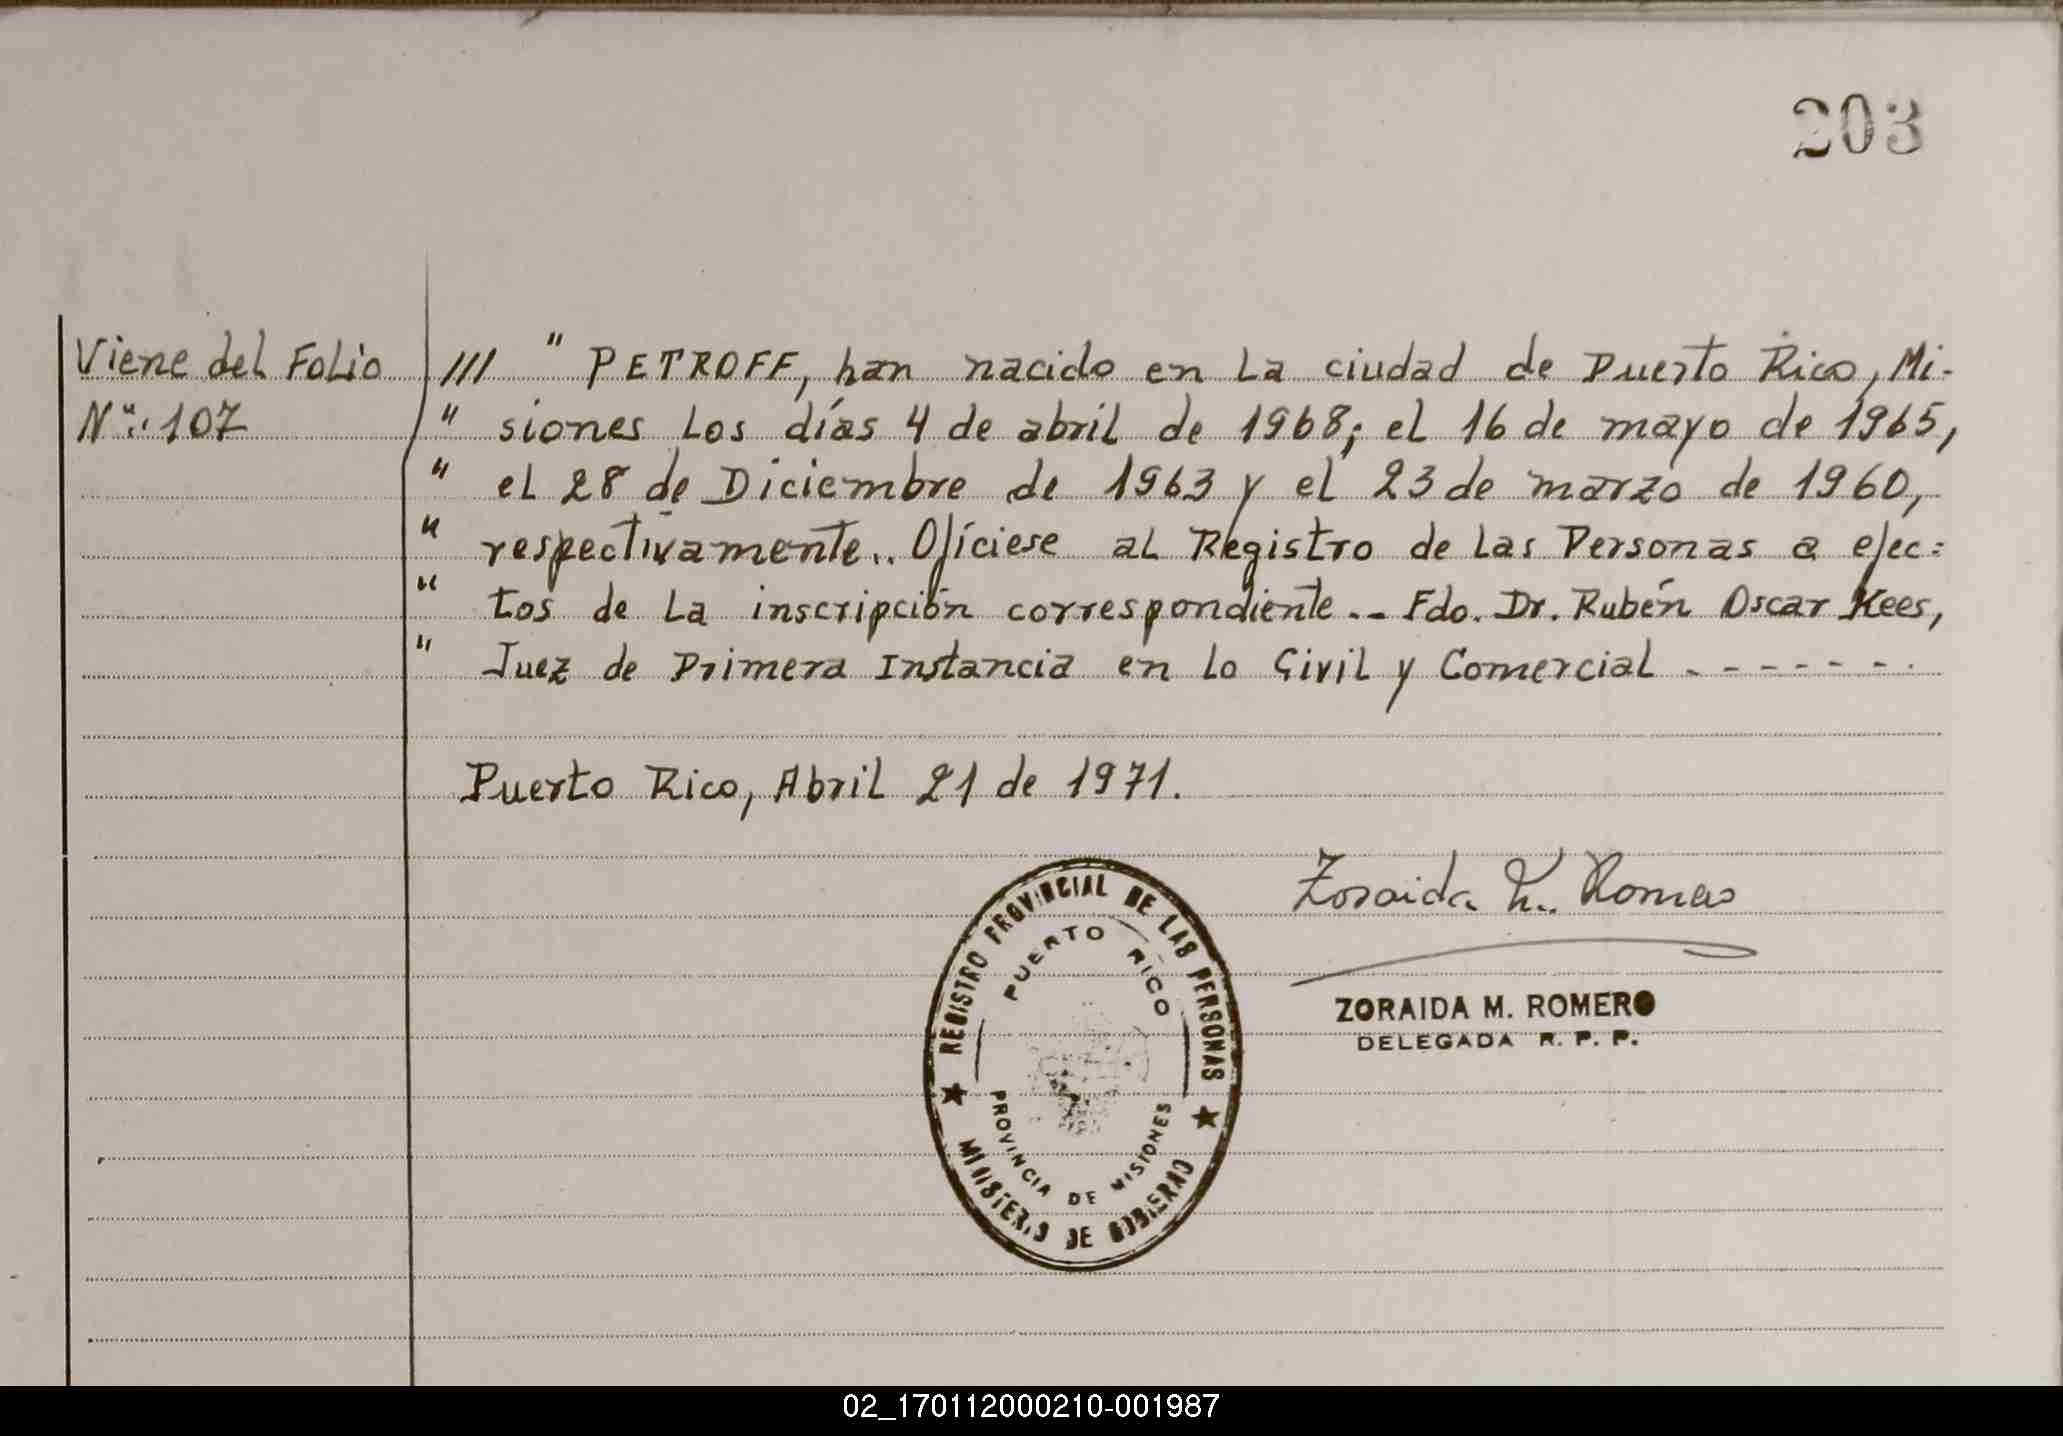 203
Viene del Folio
Nº: 107
/// " PETROFF, han nacido en La ciudad de Puerto Rico, Mi-
" siones Los días 4 de abril de 1968; el 16 de mayo de 1965,
" el 28 de Diciembre de 1963 y el 23 de marzo de 1960,
" respectivamente.. Ofíciese al Registro de las Personas a efec=
" tos de La inscripción correspondiente.- Fdo. Dr. Rubén Oscar Kees,
" Juez de Primera Instancia en lo Civil y Comercial - - - - - - - .
Puerto Rico, Abril 21 de 1971.
Zoraida M. Romero
ZORAIDA M. ROMERO
DELEGADA R. P. P.
REGISTRO PROVINCIAL DE LAS PERSONAS
PUERTO RICO
PROVINCIA DE MISIONES
MINISTERIO DE GOBIERNO
02_170112000210-001987